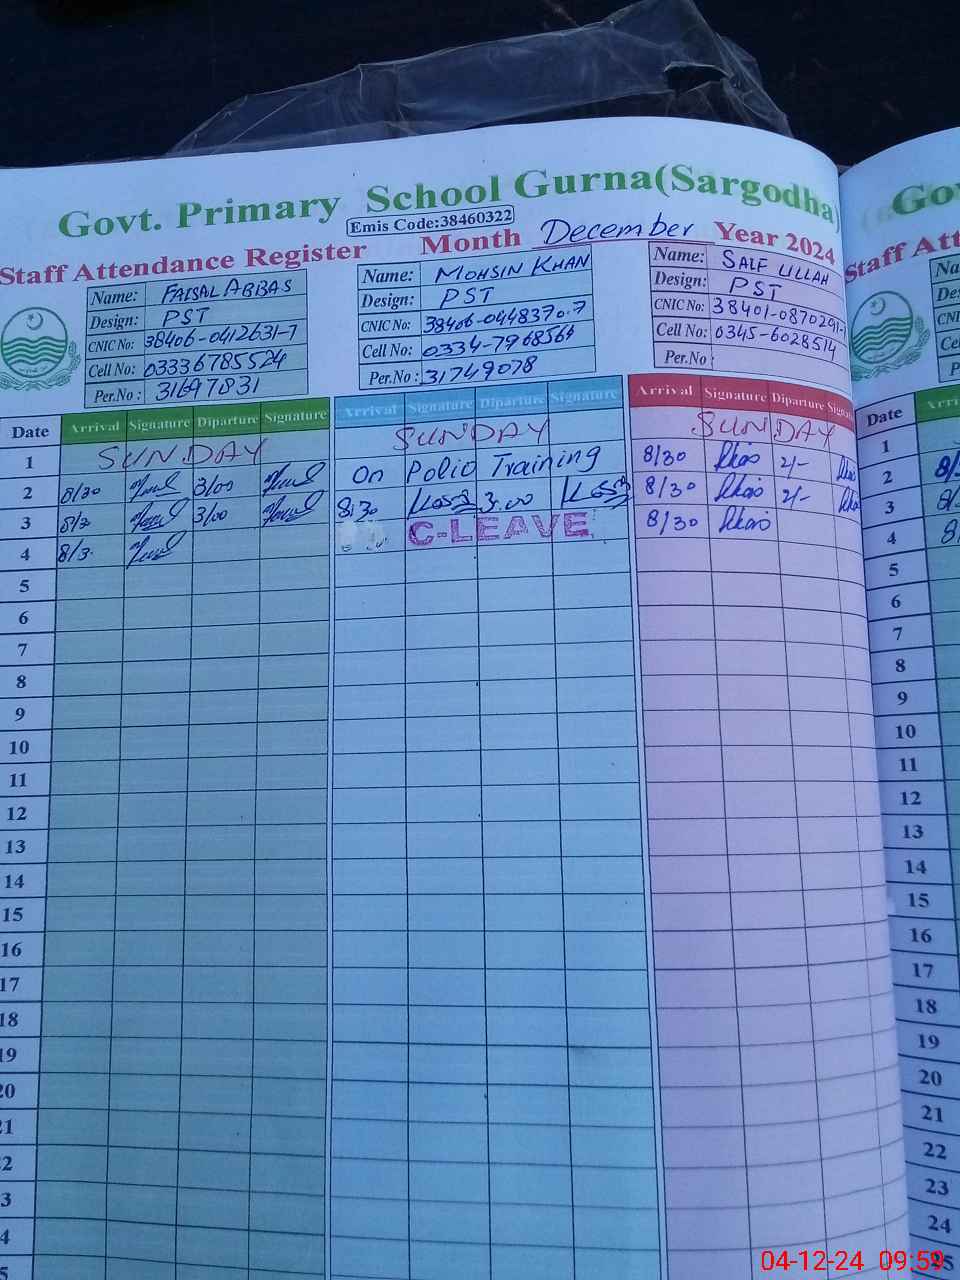 Govt. Primary School Gurna(Sargodha)
Emis Code:38460322
Staff Attendance Register Month December Year 2024
Name: FAISAL ABBAS
Design: PST
CNIC No: 38406-0412631-7
Cell No: 03336785524
Per.No : 31697831
Name: MOHSIN KHAN
Design: PST
CNIC No: 38406-0448370-7
Cell No: 0334-7968564
Per.No : 31749078
Name: SAIF ULLAH
Design: PST
CNIC No: 38401-0870291-1
Cell No: 0345-6028514
Per.No :
Date Arrival Signature Diparture Signature Arrival Signature Diparture Signature Arrival Signature Diparture
1 SUNDAY SUNDAY SUNDAY
2 8/30 3/00 On Polio Training 8/30 2/-
3 8/3 3/00 8:30 3:00 8/30 2/-
4 8/3 C-LEAVE 8/30
5
6
7
8
9
10
11
12
13
14
15
16
17
18
19
20
21
Go
Staff Att
Date Arri
1
2
3
4
5
6
7
8
9
10
11
12
13
14
15
16
17
18
19
20
21
22
23
24
25
04-12-24 09:59